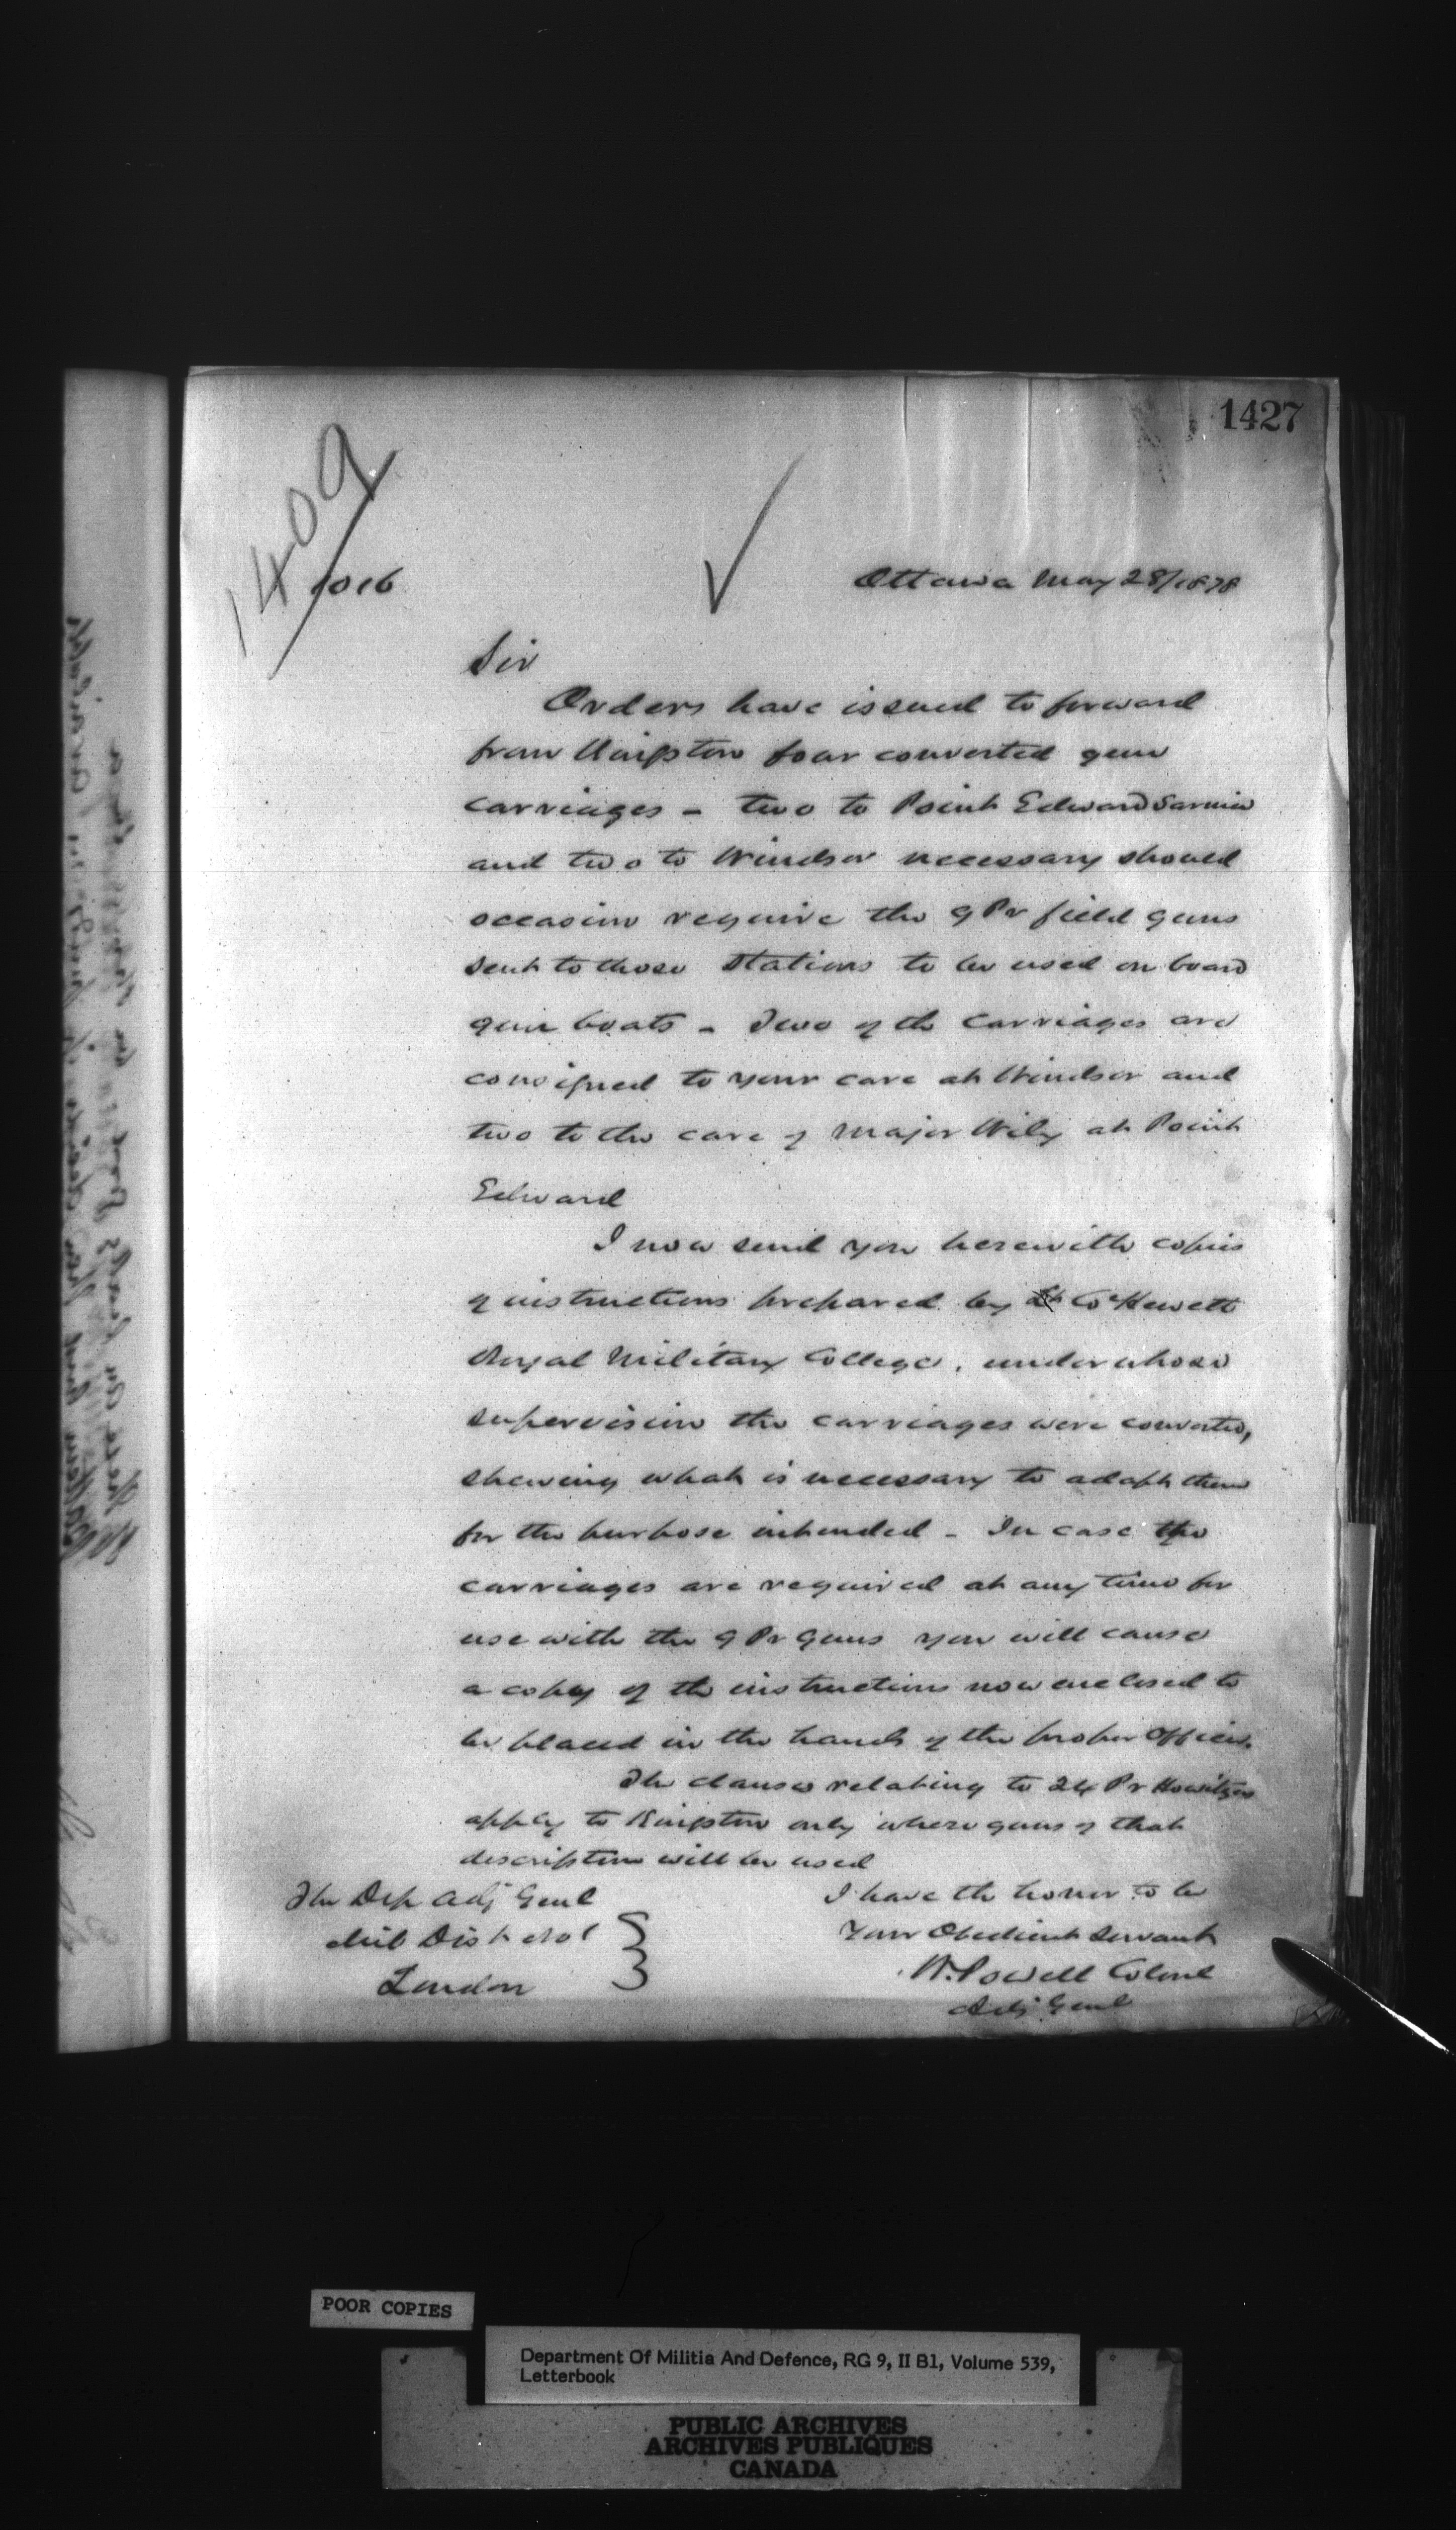 1427
1409
1016
Ottawa May 28/1878
Sir
Orders have issued to forward
from Kingston four converted gun
carriages - two to Point Edward Sarnia
and two to Windsor necessary should
occasion require the 9 Pr field guns
sent to those Stations to be used on board
gun boats - Two of the Carriages are
consigned to your care at Windsor and
two to the care of Major Wily at Point
Edward
I now send you herewith copies
of instructions prepared by Lt Col Hewett
Royal Military College, under whose
supervision the carriages were converted,
shewing what is necessary to adapt them
for the purpose intended - In case the
carriages are required at any time for
use with the 9 Pr Guns you will cause
a copy of the instructions now enclosed to
be placed in the hands of the proper Officer.
The clauses relating to 24 Pr Howitzers
apply to Kingston only where guns of that
description will be used
I have the honor to be
Your Obedient Servant
W. Powell Colonel
Adj Genl
The Dep Adj Genl
Mil Dist No 1
London
POOR COPIES
Department Of Militia And Defence, RG 9, II B1, Volume 539,
Letterbook
PUBLIC ARCHIVES
ARCHIVES PUBLIQUES
CANADA